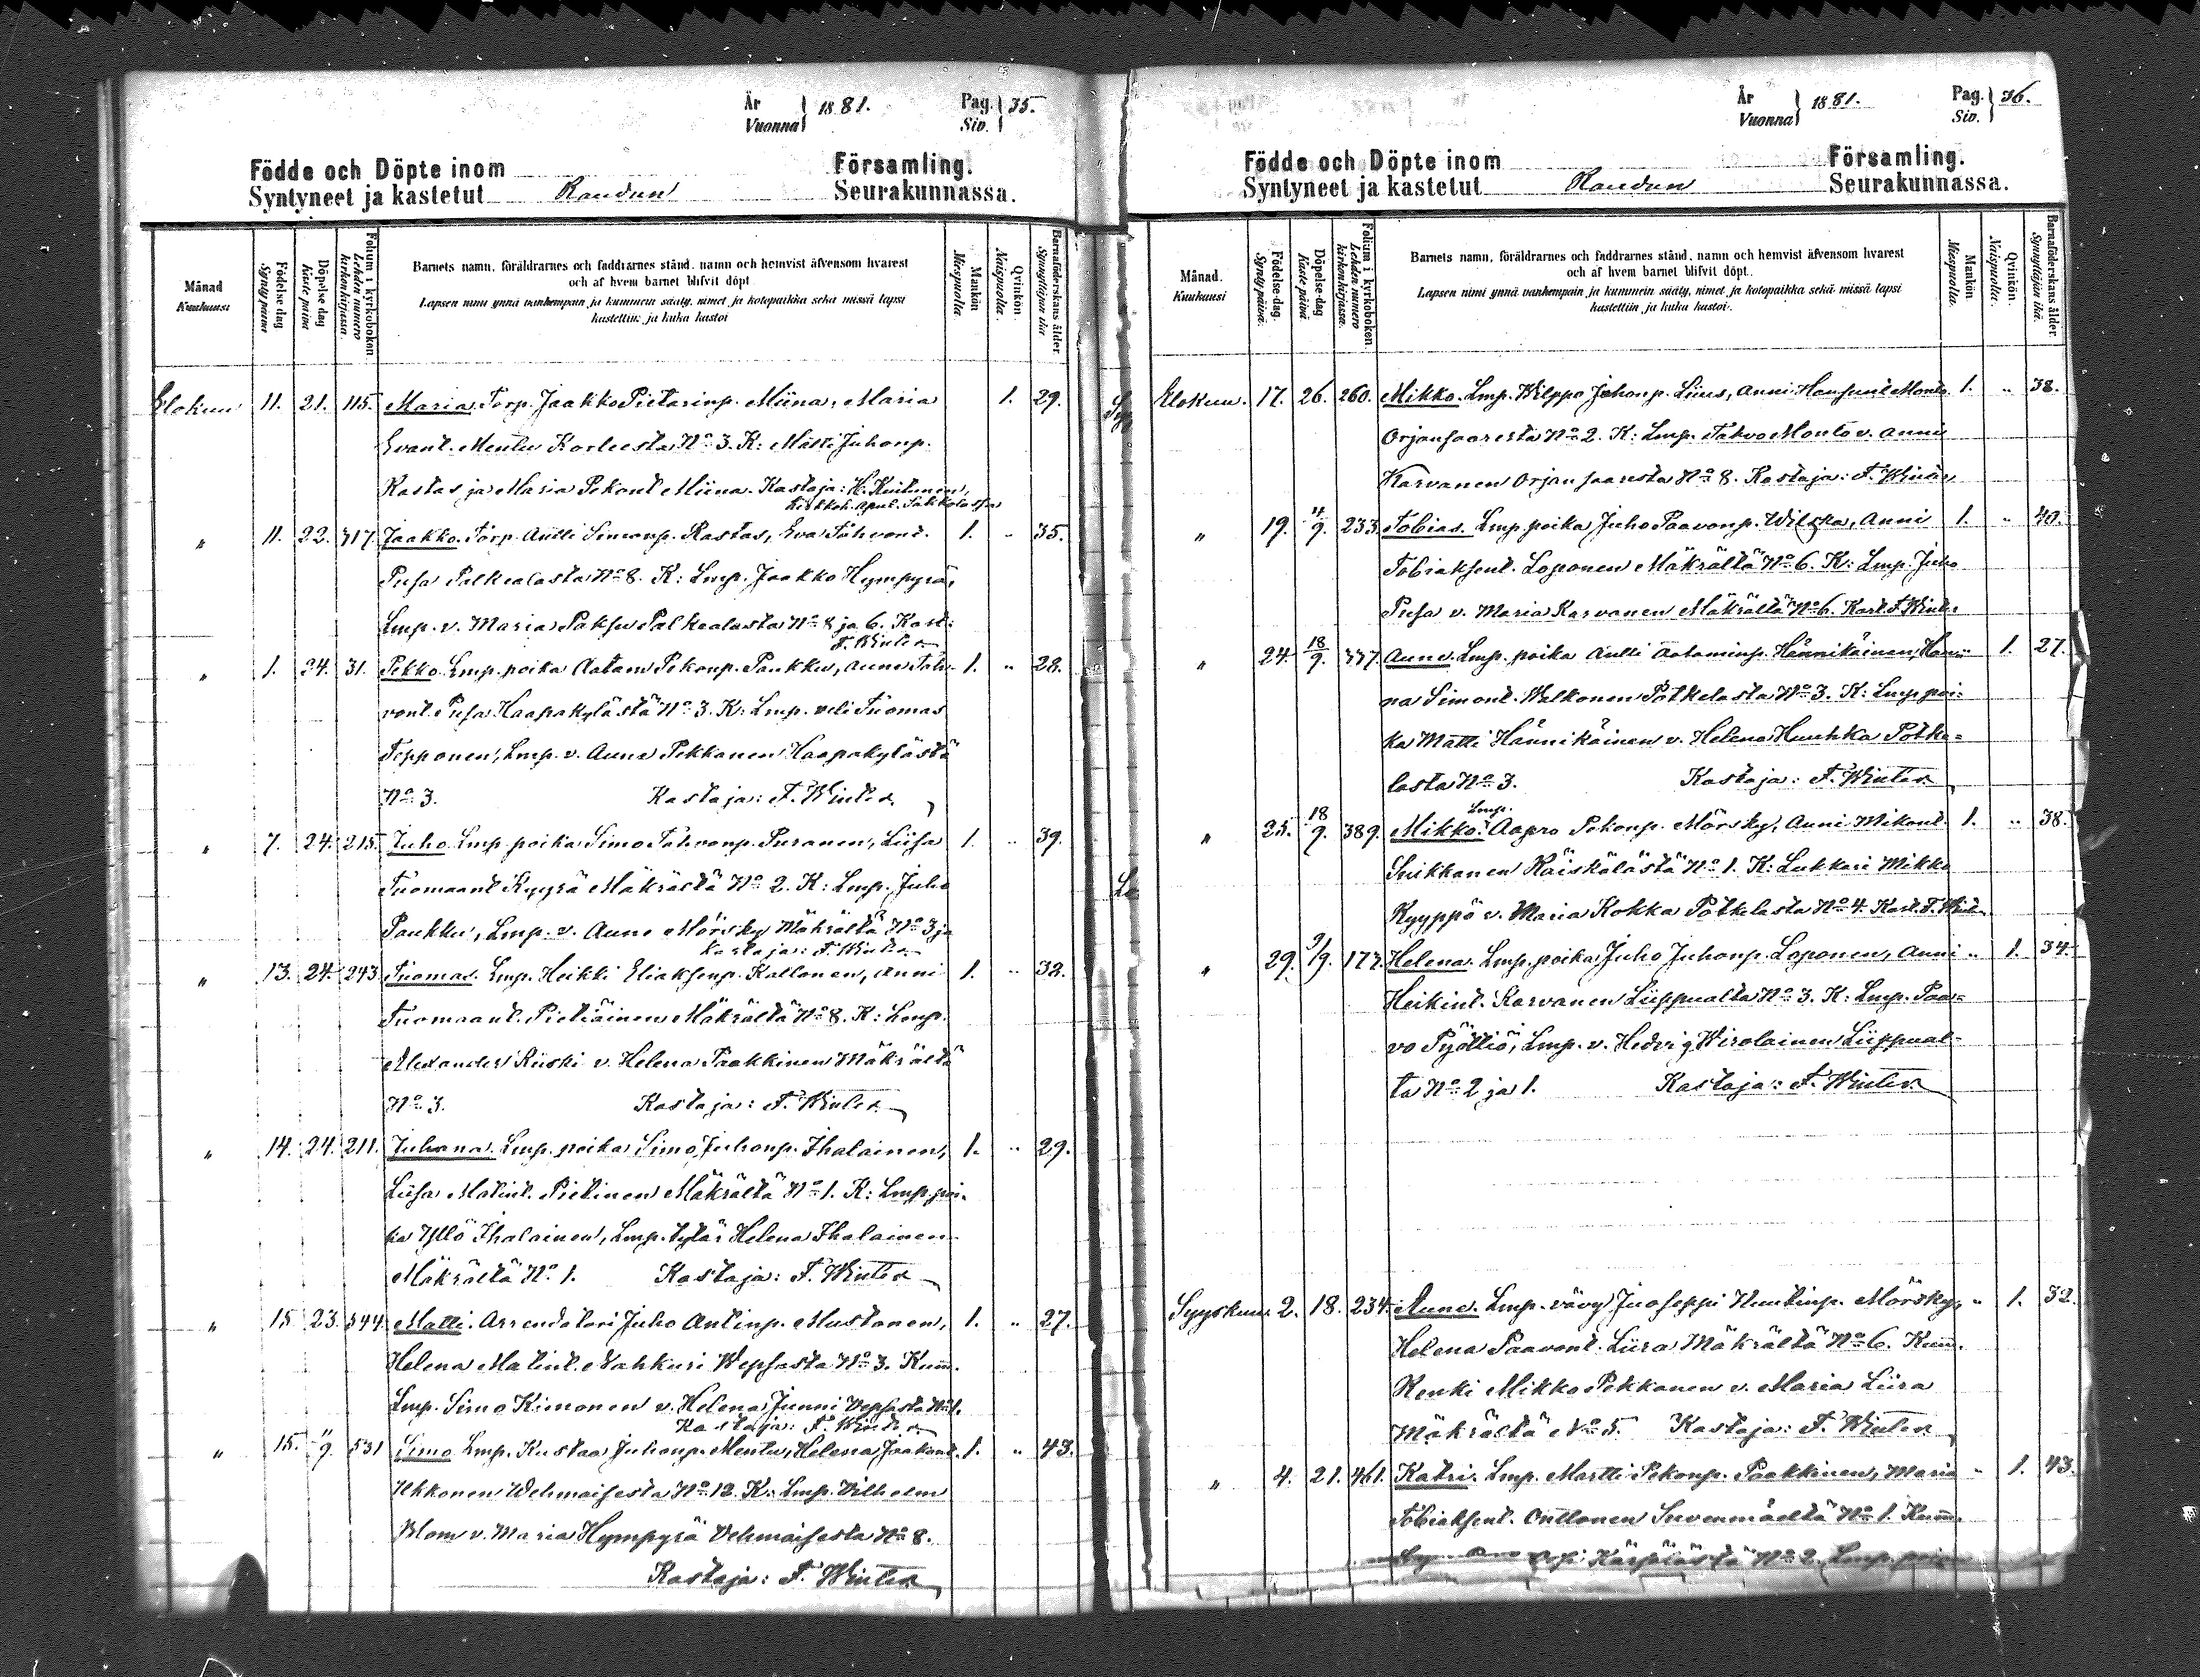 År
Vuonna } 1881.
Pag.
Siv. } 35.
Födde och Döpte inom Församling.
Syntyneet ja kastetut Raudun Seurakunnassa.
Månad
Kuukausi
Födelse dag
Syntypäivä
Döpelse dag
Kaste päivä
Folium i kyrkoboken.
Lehden numero kirkonkirjassa.
Barnets namn, föräldrarnes och faddrarnes stånd, namn och hemvist äfvensom hvarest
och af hvem barnet blifvit döpt
Lapsen nimi ynnä vanhempain ja kummein sääty, nimet ja kotopaikka sekä missä lapsi
kastettiin ja kuka kastoi
Mankön
Miespuolia.
Qvinkön
Naispuolia.
Barnaföderskans ålder.
Synnyttäjän ikä.
Elokuu 11. 21. 115. Maria. Torp. Jaakko Pietarinp. Miina, Maria 1. 29.
Evant. Mentu Korleesta No 3. K: Matti Juhonp.
Rastas ja Maria Pekont. Miina. Kastaja: H. Kuitunen,
kirkkoh. apul. Sakkolassa
" 11. 22. 717. Jaakko. Torp. Antti Simonp. Rastas, Eva Tahvont. 1. " 35.
Pusa Palkealasta No 8. K: Lmp. Jaakko Hympyrä,
Lmp. v. Maria Paksu Palkealasta No 8 ja 6. Kast:
F. Winter
" 1. 24. 31. Pekko. Lmp. poika Aatam Pekonp. Paukku, Anna Tah- 1. " 28.
vont. Pusa Haapakylästä No 3. K: Lmp. veli Tuomas
Tepponen, Lmp. v. Anna Pekkanen Haapakylästä
No 3. Kastaja: F. Winter
" 7. 24. 215. Juho. Lmp. poika Simo Tahvonp. Puranen, Liisa 1. " 39.
Tuomaant. Kyyrä Mäkrästä No 2. K: Lmp. Juho
Paukku, Lmp. v. Anna Mörsky Mäkrältä No 3 ja
Kastaja: F. Winter
" 13. 24. 243. Tuomas. Lmp. Heikki Eliaksenp. Kallonen, Anni 1. " 32.
Tuomaant. Pietiäinen Mäkrältä No 8. K: Lmp.
Alexander Kiiski v. Helena Paakkinen Mäkrältä
No 3. Kastaja: F. Winter
" 14. 24. 211. Juhana. Lmp. poika Simo Juhonp. Ihalainen, 1. " 29.
Liisa Matint. Pietinen Mäkrältä No 1. K: Lmp. poi-
ka Yllö Ihalainen, Lmp. tytär Helena Ihalainen
Mäkrältä No 1. Kastaja: F. Winter
" 15. 23. 544. Matti. Arrendatori Juho Antinp. Mustonen, 1. " 27.
Helena Matint. Nahkuri Wepsasta No 3. Kumm.
Lmp. Simo Kimonen v. Helena Junni Vepsasta No 1.
Kastaja: F. Winter
" 15. 11/9. 531 Simo. Lmp. Kustaa Juhonp. Mentu, Helena Jaakont. 1. " 43.
Ukkonen Wehmaisesta No 12. K: Lmp. Vilhelm
Blom v. Maria Hympyrä Vehmaisesta No 8.
Kastaja: F. Winter
Syy
Lo
År
Vuonna } 1881.
Pag.
Siv. } 36.
Födde och Döpte inom Församling.
Syntyneet ja kastetut Raudun Seurakunnassa.
Månad.
Kuukausi
Födelse-dag.
Synty päivä.
Döpelse-dag
Kaste päivä
Folium i kyrkoboken.
Lehden numero kirkonkirjassa.
Barnets namn, föräldrarnes och faddrarnes stånd, namn och hemvist äfvensom hvarest
och af hvem barnet blifvit döpt.
Lapsen nimi ynnä vanhempain ja kummein sääty, nimet ja kotopaikka sekä missä lapsi
kastettiin ja kuka kastoi.
Mankön
Miespuolia.
Qvinkön.
Naispuolia.
Barnaföderskans ålder.
Synnyttäjän ikä.
Elokuu. 17. 26. 260. Mikko. Lmp. Wilppo Juhonp. Liius, Anni Hansunt. Monto 1. " 38.
Orjansaaresta No 2. K: Lmp. Tahvo Monto v. Anni
Karvanen Orjansaaresta No 8. Kastaja: F. Winter
" 19. 4/9. 233. Tobias. Lmp. poika Juho Paavonp. Wilska, Anni 1. " 40.
Tobiaksent. Loponen Mäkrältä No 6. K: Lmp. Juho
Pusa v. Maria Karvanen Mäkrältä No 6. Kast. F. Winter
" 24. 18/9. 337. Anna. Lmp. poika Antti Aataminp. Hännikäinen, Han- " 1. 27.
na Simont. Walkonen Pötkelasta No 3. K: Lmp. poi-
ka Matti Hännikäinen v. Helena Huuhka Pötke-
lasta No 3. Kastaja: F. Winter
" 25. 18/9. 389. Mikko. Lmp. Aapro Pekonp. Mörsky, Anni Mikont. 1. " 38.
Suikkanen Räiskälästä No 1. K: Lukkari Mikko
Kyyppö v. Maria Kokka Pötkelasta No 4. Kast. F. Wint.
" 29. 9/9. 177. Helena. Lmp. poika Juho Juhonp. Loponen, Anni " 1. 34.
Heikint. Karvanen Liippualta No 3. K: Lmp. Paa-
vo Pyöttiö, Lmp. v. Hedvig Wirolainen Liippual-
ta No 2 ja 1. Kastaja: F. Winter
Syyskuu. 2. 18. 234. Anna. Lmp. vävy Juoseppi Huntinp. Mörsky, " 1. 32.
Helena Paavont. Liira Mäkrältä No 6. Kumm.
Renki Mikko Pekkanen v. Maria Liira
Mäkrältä No 5. Kastaja: F. Winter
" 4. 21. 461. Katri. Lmp. Martti Pekonp. Paakkinen, Maria " 1. 43.
Tobiaksent. Onttonen Suvenmäeltä No 1. Kumm.
Kärpäästä No 2 Lmp.